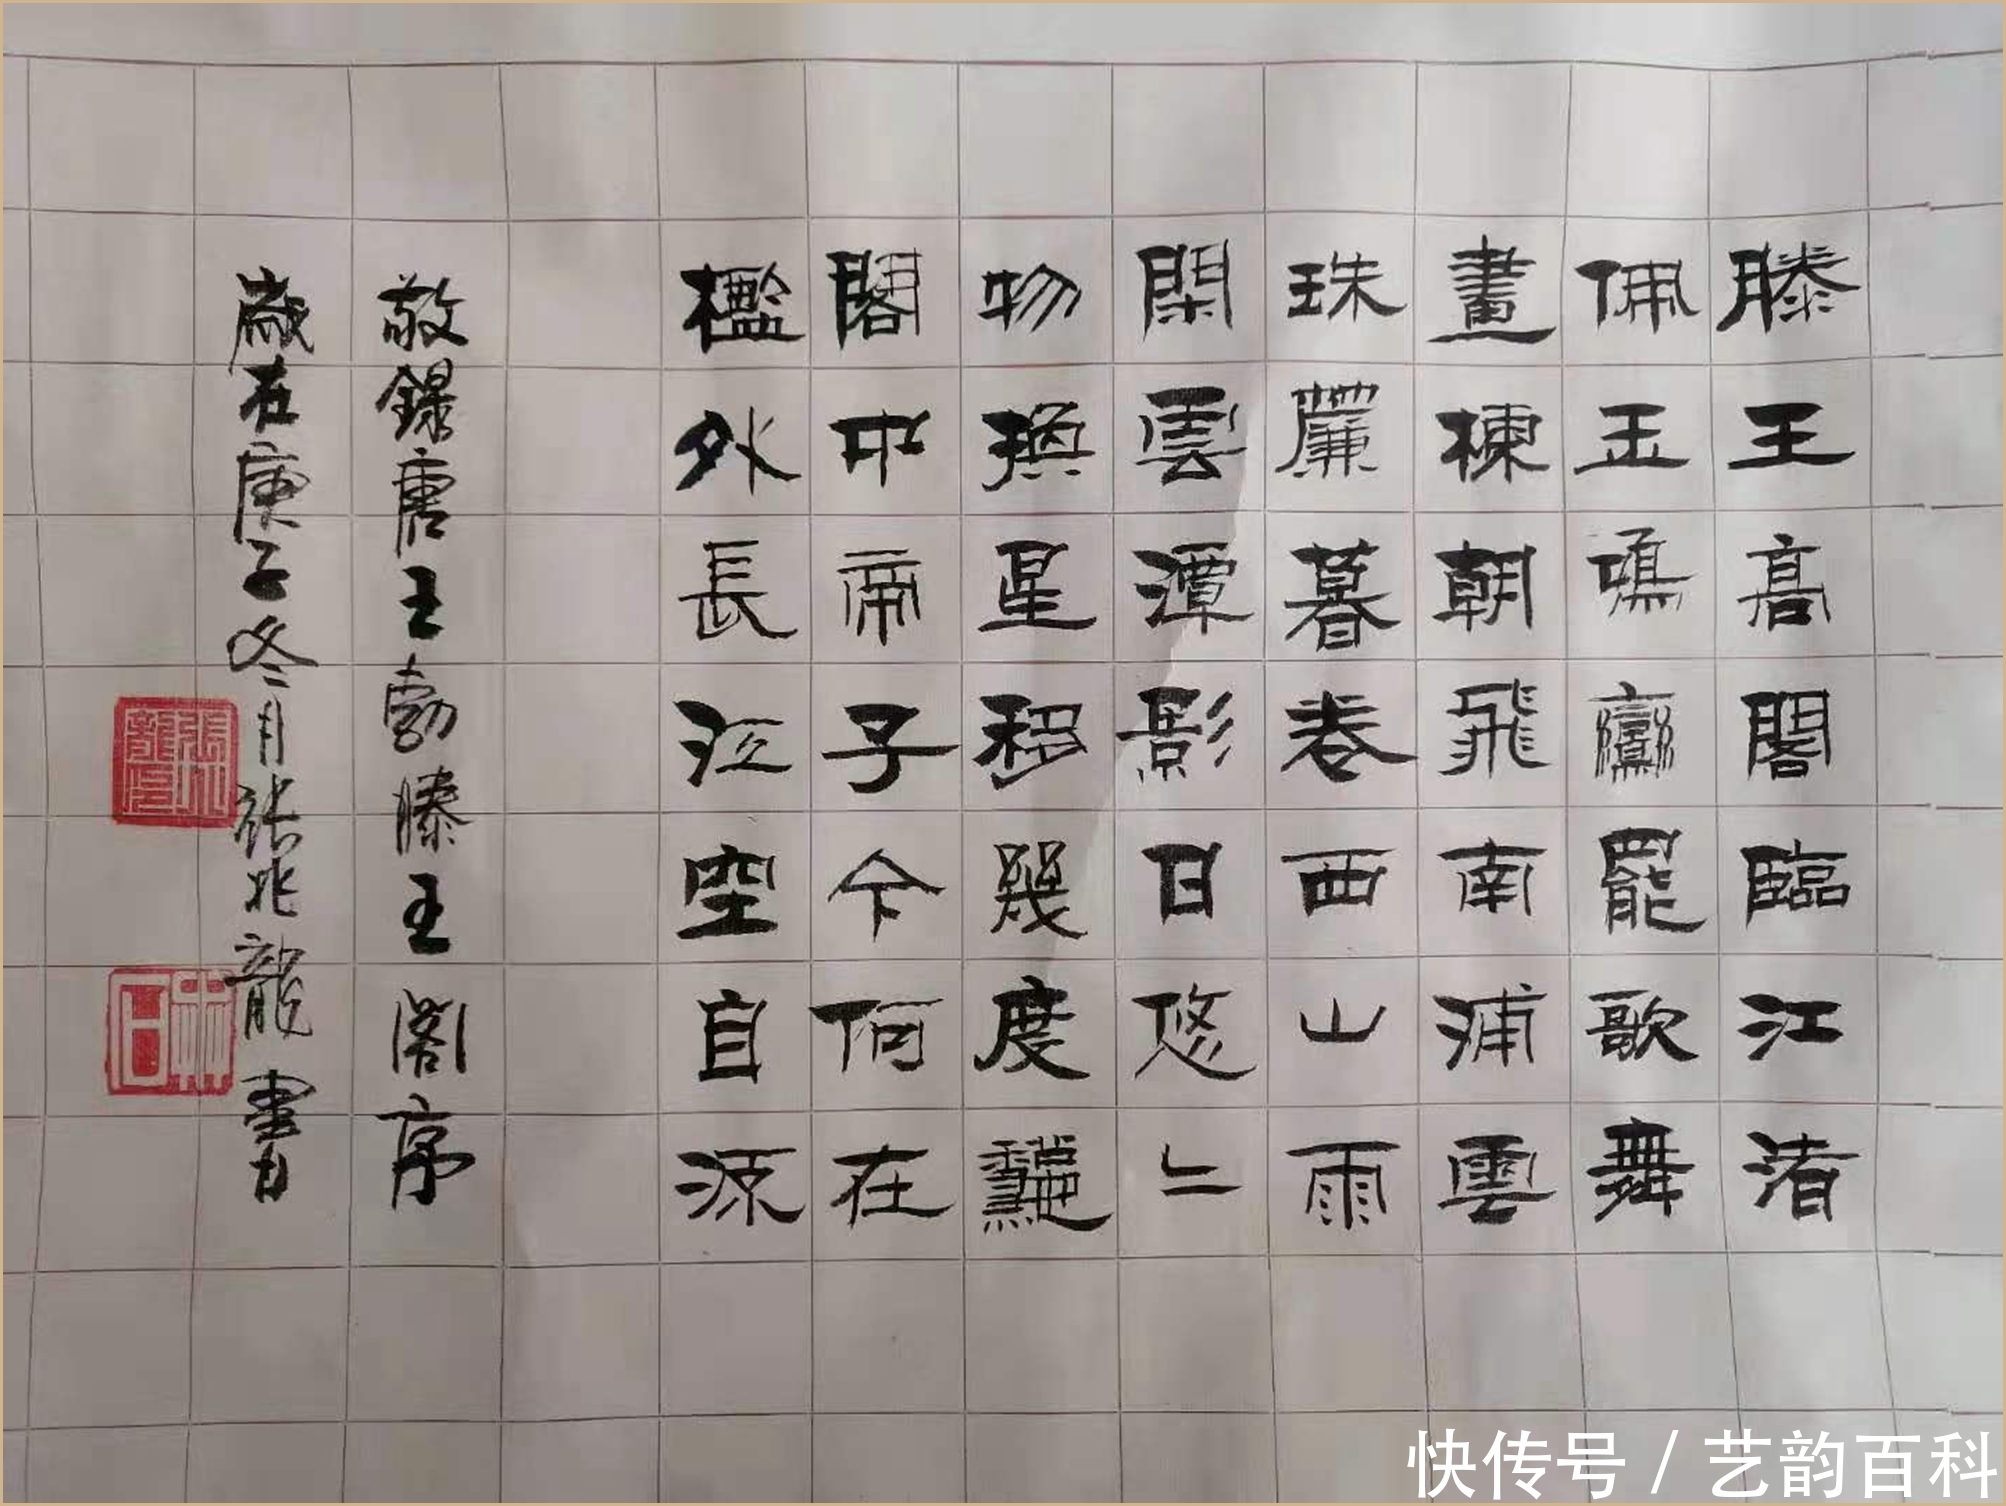 滕王高閣臨江渚
佩玉鳴鸞罷歌舞
畫棟朝飛南浦雲
珠簾暮卷西山雨
閑雲潭影日悠〻
物換星移幾度龝
閣中帝子今何在
檻外長江空自源
敬録唐王勃滕王閣序
歲在庚子冬月張兆龍書
張兆龍印
快传号 / 艺韵百科